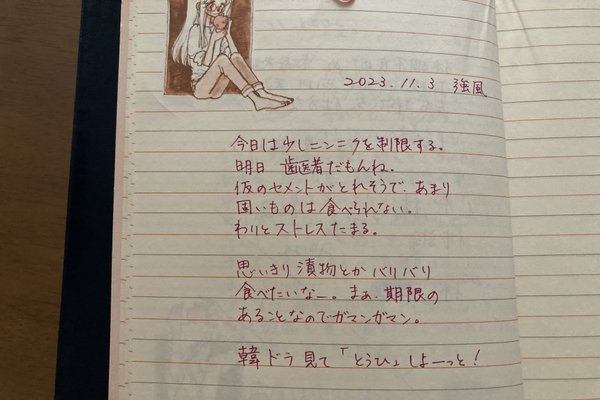 2023.11.3 強風
今日は少しニンニクを制限する。
明日 歯医者だもんね。
仮のセメントがとれそうで、あまり
固いものは食べられない。
わりとストレスたまる。
思いきり漬物とかバリバリ
食べたいなー。まぁ、期限の
あることなのでガマンガマン。
韓ドラ見て「とうひ」しよーっと!